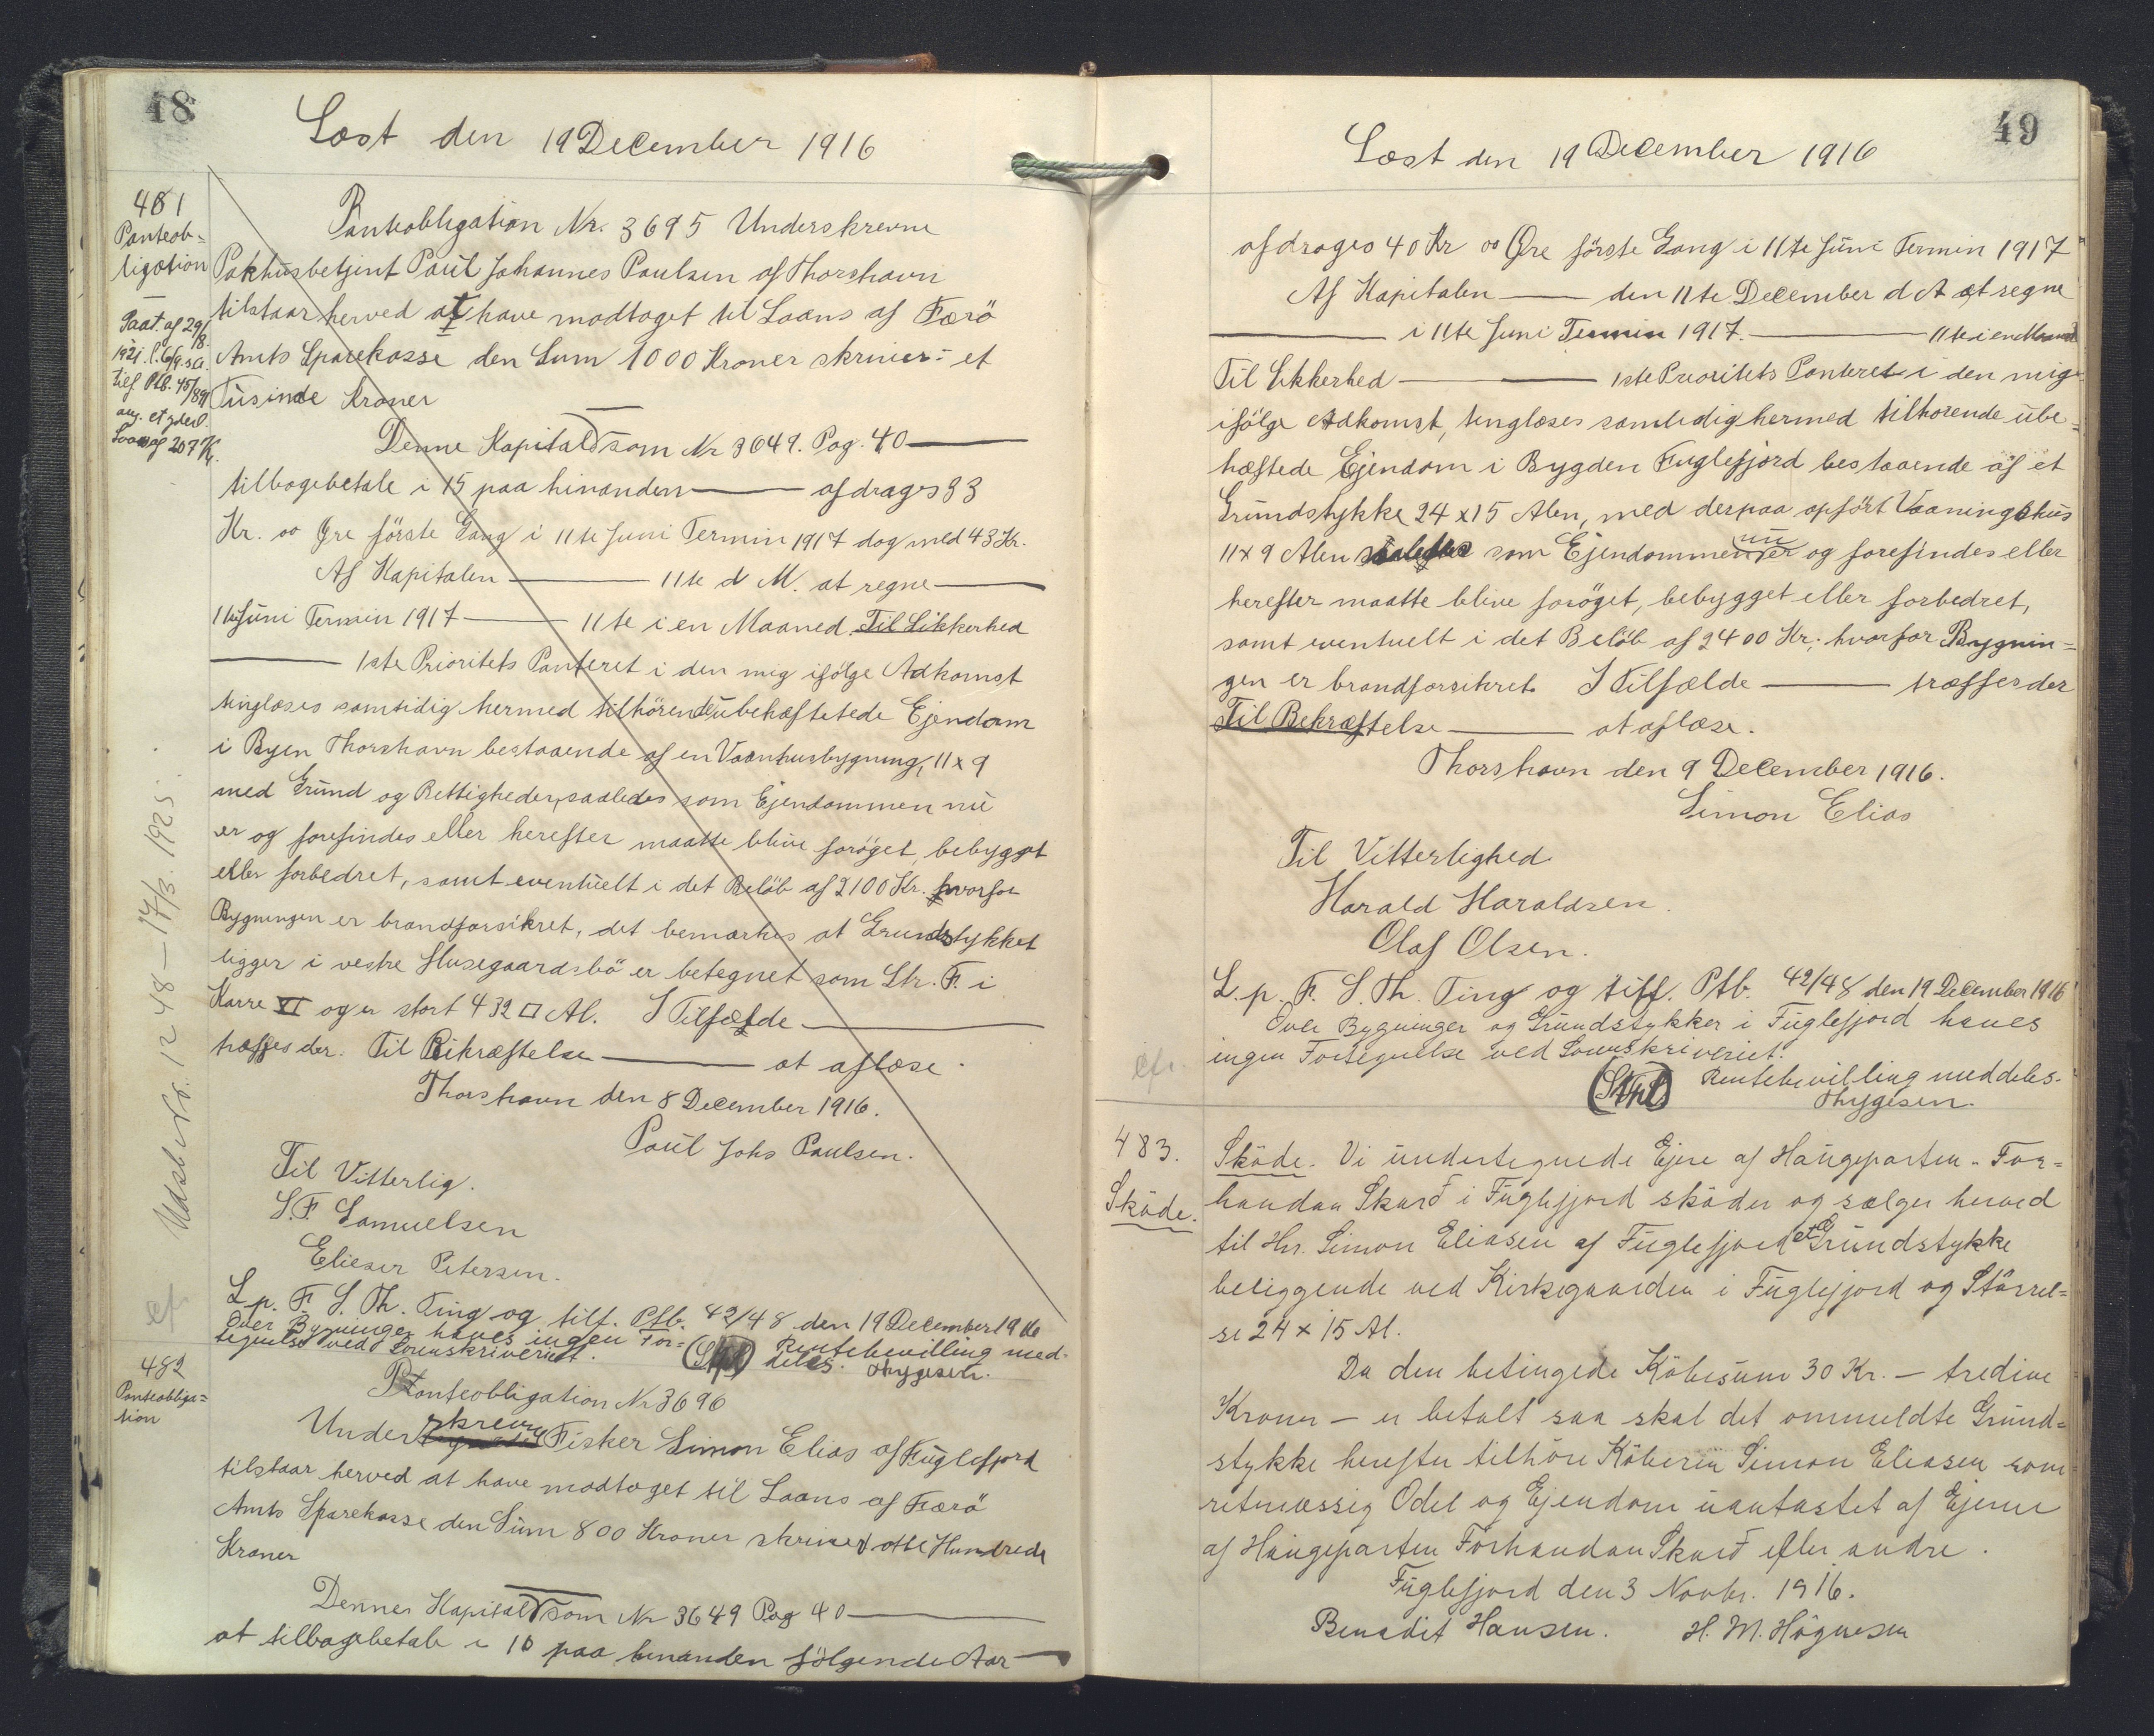 48
Læst den 19 December 1916
481
Panteob=
ligation
Paat. af 29/8
1921. l. 6/9. s.A.
tilf. Ptb. 45/891
ang. et yderl.
Laan af 207 Kr.
Udsb. No. 1248 — 17/3. 1925.
cfr.
Panteobligation Nr. 3695 Underskrevne
Pakhusbetjent Paul Johannes Paulsen af Thorshavn
tilstaar herved at have modtaget til Laans af Færö
Amts Sparekasse den Sum 1000 Kroner skriver: et
Tusinde Kroner
Denne Kapital som Nr 3649. Pag. 40 —
tilbagebetale i 15 paa hinanden — afdrages 33
Kr. 00 Øre förste Gang i 11te Juni Termin 1917 dog med 43 Kr.
Af Kapitalen — 11te d M. at regne —
11te Juni Termin 1917 — 11te i en Maaned Til Sikkerhed
— 1ste Prioritets Panteret i den mig ifölge Adkomst
tinglæses samtidig hermed tilhörende ubehæftetede Ejendom
i Byen Thorshavn bestaaende af en Vaanhusbygning, 11 x 9
med Grund og Rettigheder, saaledes som Ejendommen nu
er og forefindes eller herefter maatte blive foröget, bebygget
eller forbedret, samt eventuelt i det Belöb af 2100 Kr. hvorfor
Bygningen er brandforsikret, det bemærkes at Grundstykket
ligger i vestre Husegaardsbö er betegnet som Str. F. i
Karre XI og er stort 432 □ Al. I Tilfælde —
træffes der. Til Bekræftelse — at aflæse.
Thorshavn den 8 December 1916.
Paul Johs Paulsen.
Til Vitterlig.
S. F. Samuelsen
Elieser Petersen.
L. p. F. S. Th. Ting og tilf. Ptb. 42/48 den 19 December 1916
Over Bygninger haves ingen For=
tegnelse ved Sorenskriveriet. Rentebevilling med=
deles. Thygesen.
482
Panteobliga=
tion
Panteobligation Nr 3696
Underskrevne Fisker Simon Elias af Fuglefjord
tilstaar herved at have modtaget til Laans af Færö
Amts Sparekasse den Sum 800 Kroner skriver otte Hundrede
Kroner
Denne Kapital som Nr 3649 Pag 40 —
at tilbagebetale i 10 paa hinanden fölgende Aar —
49
Læst den 19 December 1916
afdrages 40 Kr 00 Øre förste Gang i 11te Juni Termin 1917
Af Kapitalen — den 11te December d A at regne
— i 11te Juni Termin 1917. — 11te i en Maaned
Til Sikkerhed — 1ste Prioritets Panteret i den mig
ifölge Adkomst, tinglæses samtidig hermed tilhorende ube=
hæftede Ejendom i Bygden Fuglefjord bestaaende af et
Grundstykke 24 x 15 Alen, med derpaa opfört Vaaningshus
11 x 9 Alen saaledes som Ejendommen nu er og forefindes eller
herefter maatte blive foröget, bebygget eller forbedret,
samt eventuelt i det Belöb af 2400 Kr; hvorfor Bygnin=
gen er brandforsikret. I Tilfælde — træffes der
Til Bekræftelse — at aflæse.
Thorshavn den 9 December 1916.
Simon Elias
Til Vitterlighed
Harald Haraldsen.
Olaf Olsen.
L. p. F. S. Th. Ting og tilf. Ptb. 42/48 den 19 December 1916
Over Bygninger og Grundstykker i Fuglefjord haves
ingen Fortegnelse ved Sorenskriveriet.
cfr.
Rentebevilling meddeles.
Thygesen.
483.
Sköde.
Sköde. Vi undertegnede Ejere af Haugeparten - For=
handan Skarð i Fuglefjord sköder og sælger herved
til Hr. Simon Eliasen af Fuglefjord et Grundstykke
beliggende ved Kirkegaarden i Fuglefjord og Störrel=
se 24 x 15 Al.
Da den betingede Köbesum 30 Kr. — tredive
Kroner — er betalt saa skal det ommeldte Grund=
stykke herefter tilhöre Köberen Simon Eliasen som
retmæssig Odel og Ejendom uantastet af Ejerne
af Haugeparten Forhandan Skarð eller andre.
Fuglefjord den 3 Novbr. 1916.
Benadit Hansen. H. M. Högnesen